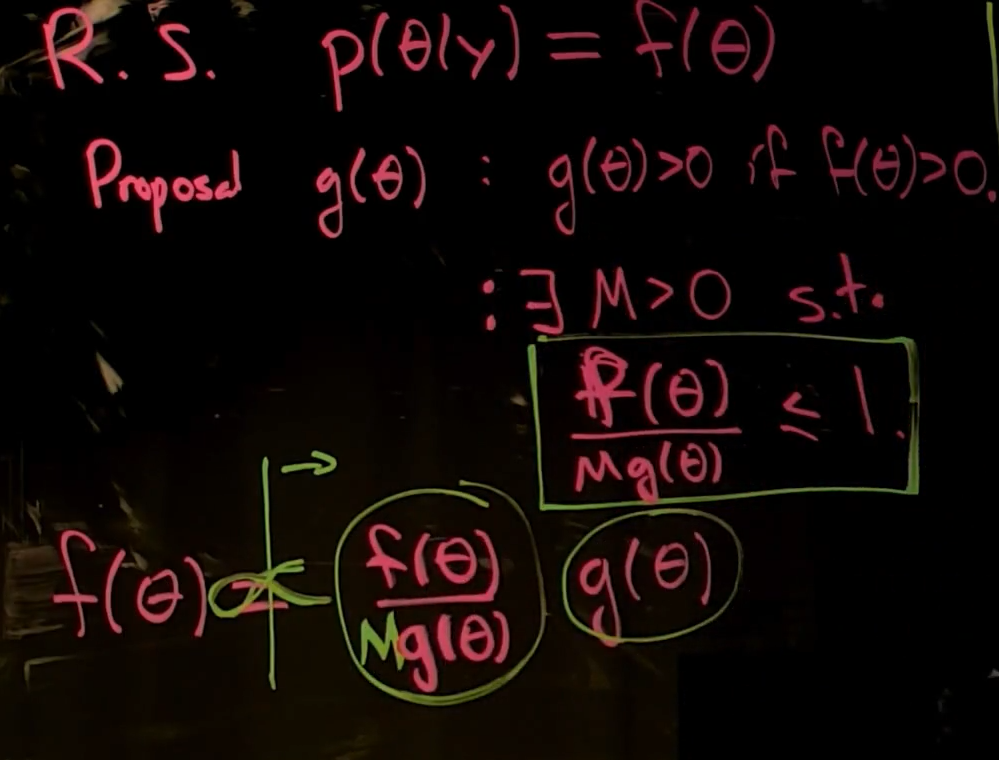 R. S. p(θ|y) = f(θ)
Proposal g(θ) : g(θ)>0 if f(θ)>0.
: ∃ M>0 s.t.
f(θ)/Mg(θ) ≤ 1.
→
f(θ) ∝ f(θ)/Mg(θ) g(θ)